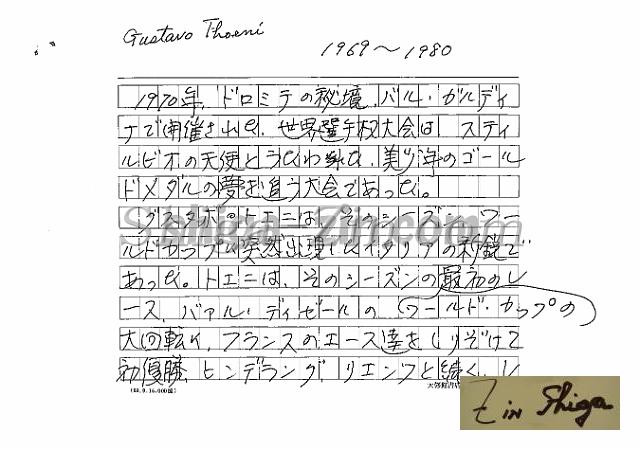 Gustavo Thoeni
1969〜1980
1970年、ドロミテの秘境、バル・ガルディ
ナで開催された、世界選手権大会は、スティ
ルビオの天使とうたわれた、美少年のゴール
ドメダルの夢を追う大会であった。
グスタボ・トエニは、そのシーズン、ワー
ルドカップに突然出現したイタリアの新鋭で
あった。トエニは、そのシーズンの最初のレ
ース、バァル・ディゼールの ワールド・カップの
大回転で、フランスのエース達をしりぞけて
初優勝、ヒンデラング、リエンツと続く、レ
Shiga-Zin.com
Z in Shiga